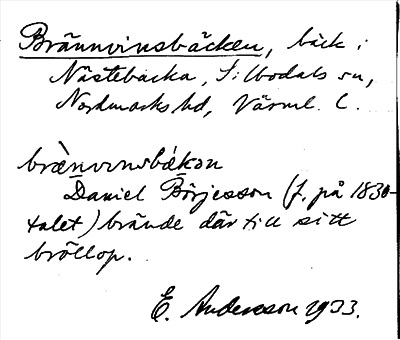 Brännvinsbäcken, bäck i
Nästebacka, Silbodals sn,
Nordmarks hd, Värml. l.
brä̀nvinsbä́kən
Daniel Börjesson (f. på 1830-
talet) brände där till sitt
bröllop.
E. Andersson 1933.